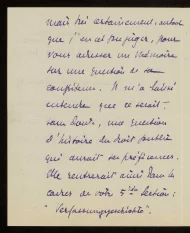 mais très certainement, autant
que j'en ai pu juger, pour
vous adresser un Mémoire
sur une question de sa
compétence. Il m'a laissé
entendre que ce serait —
sans doute, une question
d'histoire du droit public
qui aurait ses préférences.
Elle rentrerait ainsi dans le
cadre de votre 5ème Section:
"Verfassungsgeschichte".